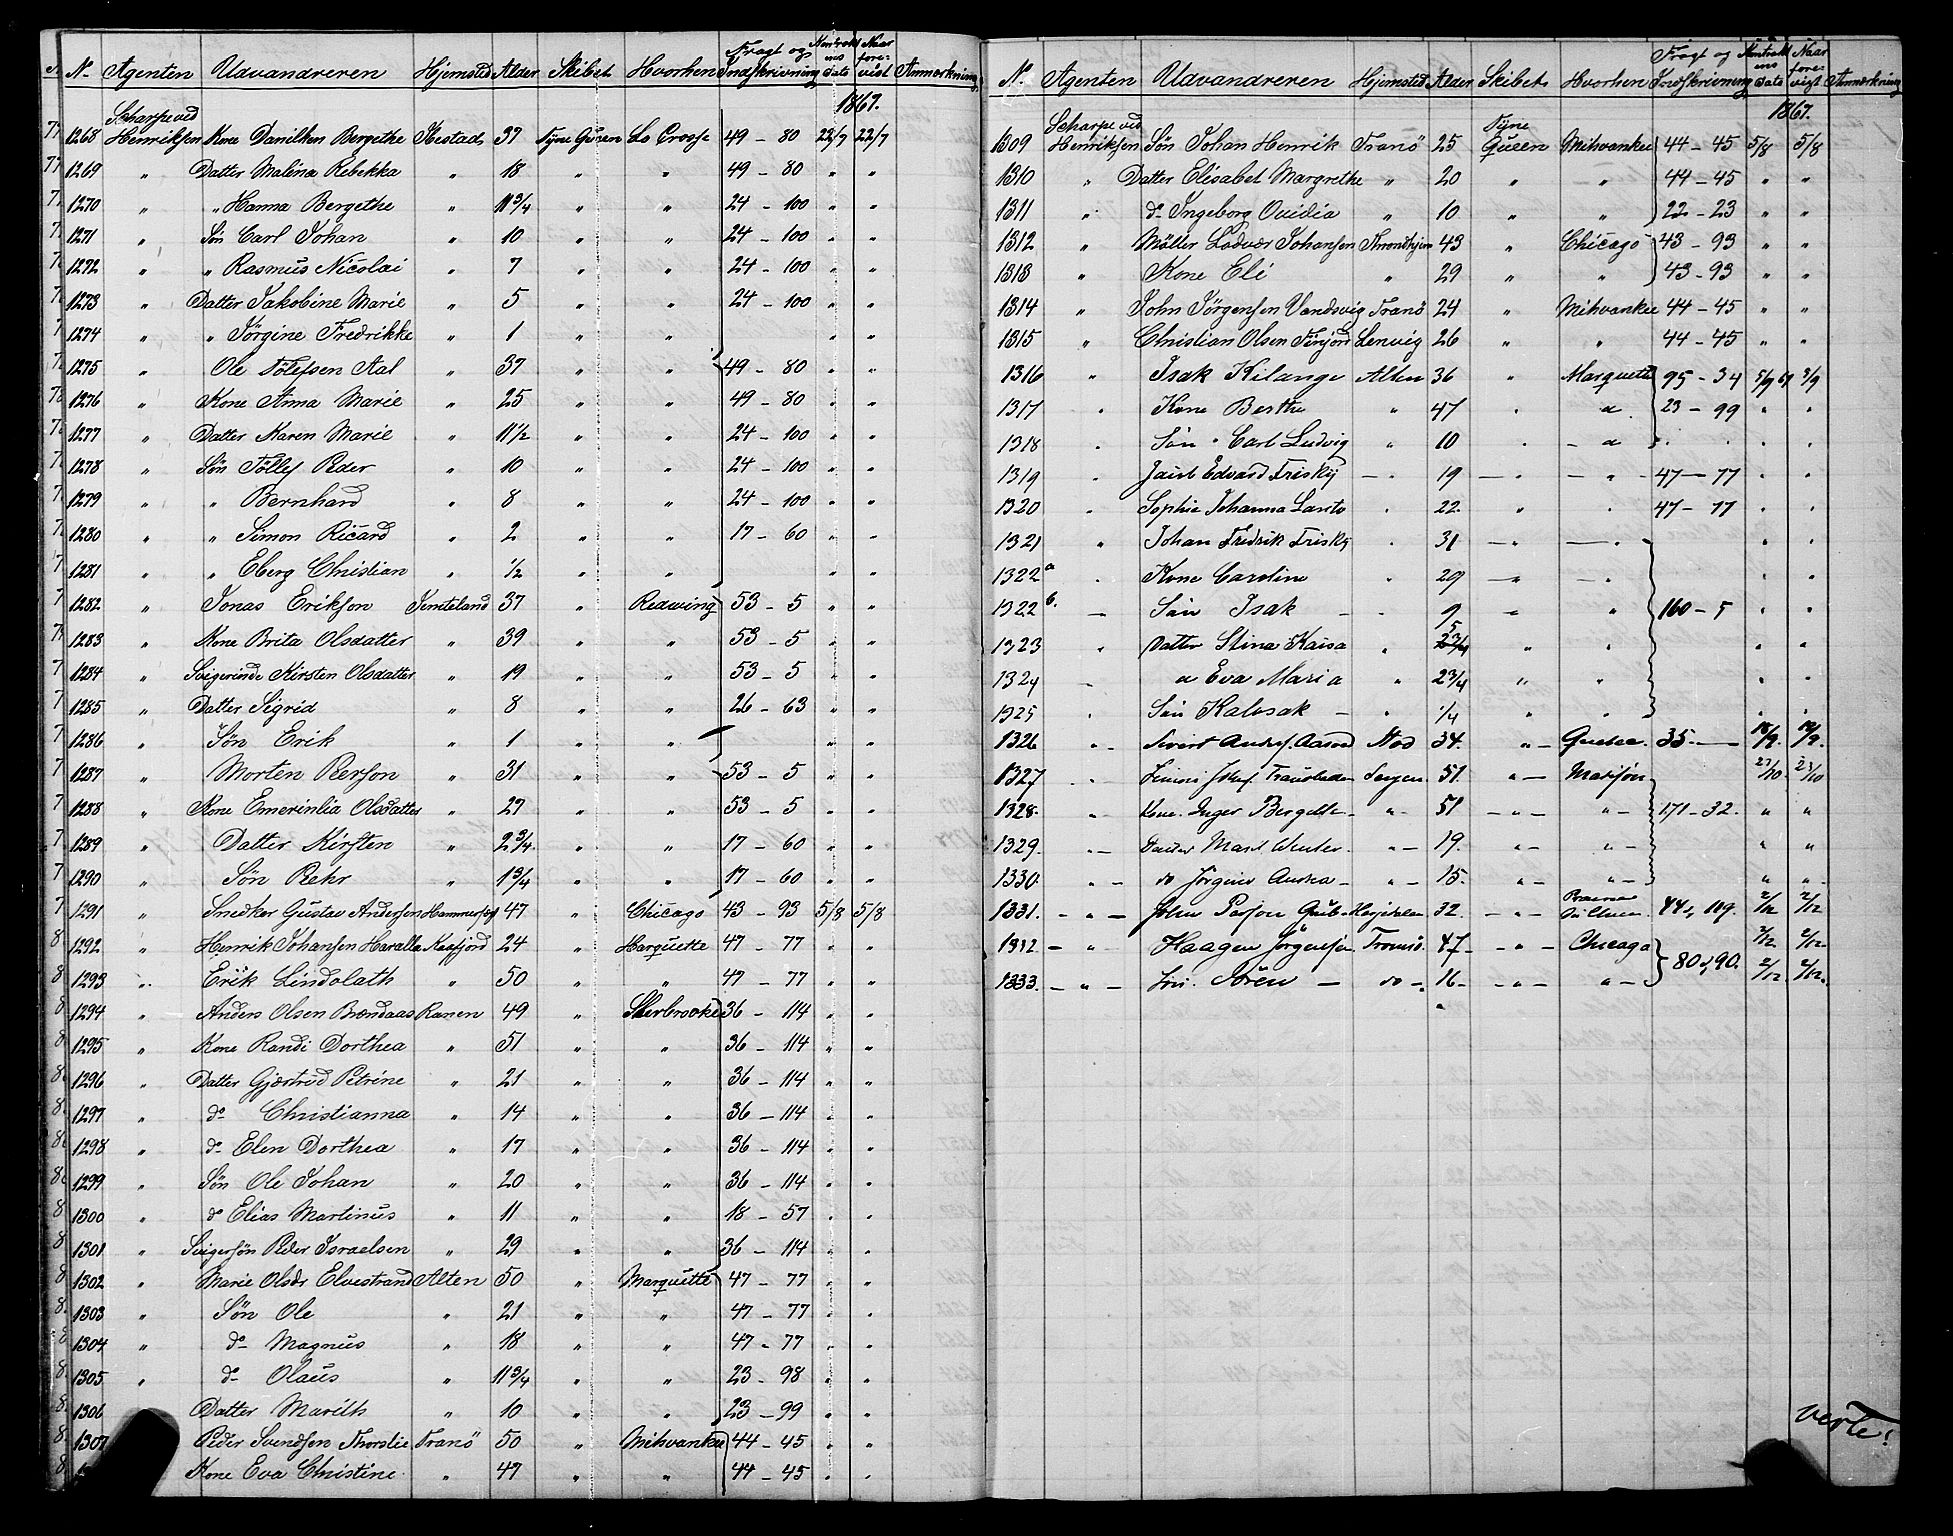 N. Agenten Udvandreren Hjemsted Alder Skibet Hvorhen Fragt og Indskrivning Kontraktens Dato Naar forevist Anmærkning
1867.
Scharpe ved
1268 Henriksen Kone Danilken Bergethe Ibestad 37 Tyne Queen La Crosse 49 - 80 22/7 22/7
1269 " Datter Malena Rebekka " 18 " " 49 - 80 " "
1270 " " Hanna Bergethe " 11 3/4 " " 24 - 100 " "
1271 " Søn Carl Johan " 10 " " 24 - 100 " "
1272 " " Rasmus Nicolai " 7 " " 24 - 100 " "
1273 " Datter Jakobine Marie " 5 " " 24 - 100 " "
1274 " " Jørgine Fredrikke " 1 " " " "
1275 " Ole Tølefsen Aal " 37 " " 49 - 80 " "
1276 " Kone Anna Marie " 25 " " 49 - 80 " "
1277 " Datter Karen Marie " 11 1/2 " " 24 - 100 " "
1278 " Søn Tøllef Peder " 10 " " 24 - 100 " "
1279 " " Bernhard " 8 " " 24 - 100 " "
1280 " " Simon Ricard " 2 " " 17 - 60 " "
1281 " " Eberg Christian " 1/2 " " " "
1282 " Jonas Erikson Jemteland 37 " Redwing 53 - 5 " "
1283 " Kone Brita Olsdatter " 39 " " 53 - 5 " "
1284 " Svigerinde Kirsten Olsdatter " 19 " " 53 - 5 " "
1285 " Datter Sigrid " 8 " " 26 - 63 " "
1286 " Søn Erik " 1 " " " "
1287 " Morten Persson " 31 " " 53 - 5 " "
1288 " Kone Emerinlia Olsdatter " 27 " " 53 - 5 " "
1289 " Datter Kirsten " 2 3/4 " " 17 - 60 " "
1290 " Søn Pehr " 1 3/4 " " 17 - 60 " "
1291 " Snedker Gustav Andersen Hammerfest 47 " Chicago 43 - 93 5/8 5/8
1292 " Henrik Johansen Haralla Kaafjord 24 " Marquette 47 - 77 " "
1293 " Erik Lindolath " 50 " " 47 - 77 " "
1294 " Anders Olsen Brændaas Ranen 49 " Sherbrooke 36 - 114 " "
1295 " Kone Randi Dorthea " 51 " " 36 - 114 " "
1296 " Datter Gjærtrud Petrine " 21 " " 36 - 114 " "
1297 " do Christianna " 14 " " 36 - 114 " "
1298 " do Elen Dorthea " 17 " " 36 - 114 " "
1299 " Søn Ole Johan " 20 " " 36 - 114 " "
1300 " do Elias Martinus " 11 " " 18 - 57 " "
1301 " Svigersøn Peder Israelsen " 29 " " 36 - 114 " "
1302 " Marie Olsdr Elvestrand Alten 50 " Marquette 47 - 77 " "
1303 " Søn Ole " 21 " " 47 - 77 " "
1304 " do Magnus " 18 " " 47 - 77 " "
1305 " do Olaus " 11 3/4 " " 23 - 98 " "
1306 Datter Marith " 10 " " 23 - 99 " "
1307 Peder Svendsen Thorslie Tranö 50 " Milwaukee 44 - 45 " "
Kone Eva Christine " 47 " " 44 - 45 " "
N. Agenten Udvandreren Hjemsted Alder Skibet Hvorhen Fragt og Indskrivning Kontraktens Dato Naar forevist Anmærkning
1867.
Scharpe ved Tyne
1309 Henriksen Søn Johan Henrik Tranö 25 Queen Milwaukee 44 - 45 5/8 5/8
1310 " Datter Elisabet Margrethe " 20 " " 44 - 45 " "
1311 " do Ingeborg Ovidia " 10 " " 22 - 23 " "
1312 " Møller Lodvær Johansen Throndhjem 43 " Chicago 43 - 93 " "
1313 " Kone Eli " 29 " " 43 - 93 " "
1314 " John Jørgensen Vandsvig Tranö 24 " Milwaukee 44 - 45 " "
1315 " Christian Olsen Finjord Lenvig 26 " " 44 - 45 " "
1316 " Isak Kilange Alten 36 " Marquette 95 - 34 5/9 67 3/9
1317 " Kone Berthe " 47 " " 23 - 99 " "
1318 " Søn Carl Ludvig " 10 " " " "
1319 " Jacob Edvard Frisky " 19 " " 47 - 77 " "
1320 " Sophie Johanna " 22 " " 47 - 77 " "
1321 " Johan Fredrik Frisky " 31 " " " "
1322 a " Kone Caroline " 29 " " " "
1322 b. " Søn Isak " 9 " " 160 - 5 " "
1323 " Datter Stina Kaisa " 5 " " " "
1324 " " Eva Maria " 2 3/4 " " " "
1325 Søn Kalosak " 1/4 " " " "
1326 " Sivert Andrs. Aasved Stod 34. " Quebec. 35. 18/9. 18/9.
1327 " 51. " 23/10 23/10
1328. " Kone. Inger Bergitte " 51 " " 171 - 32. " "
1329. " Datter Marit " 19. " " " "
1330. " do Jørgine Andrea " 15. " " " "
1331. " John 32. " 44, 109. 2/12 2/12
1332 " Haagen Jørgensen Tromsö. 47 " Chicago 2/12 2/12
1333. " Søn. Sören do 16 " " 80, 90. 2/12. 2/12.
verte!